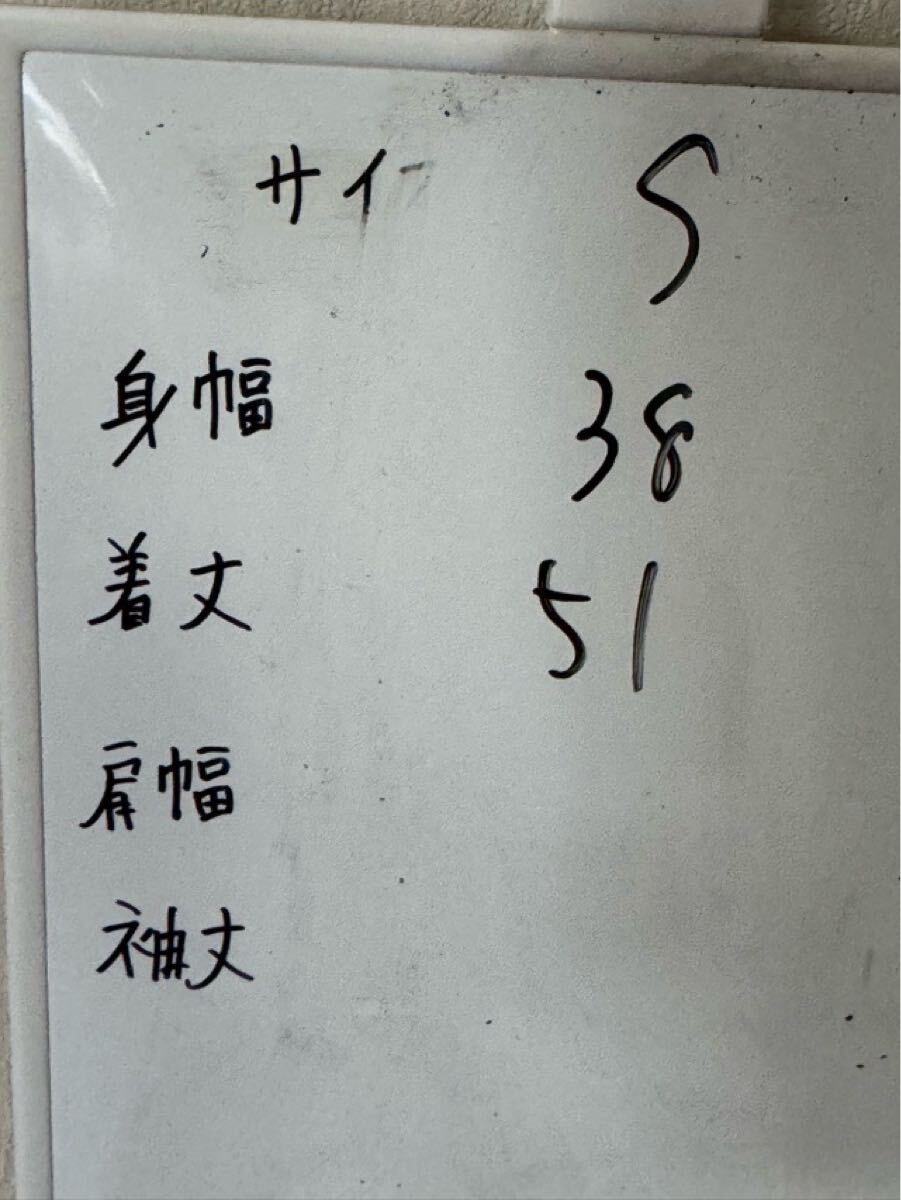 サイ S
身幅 38
着丈 51
肩幅
袖丈